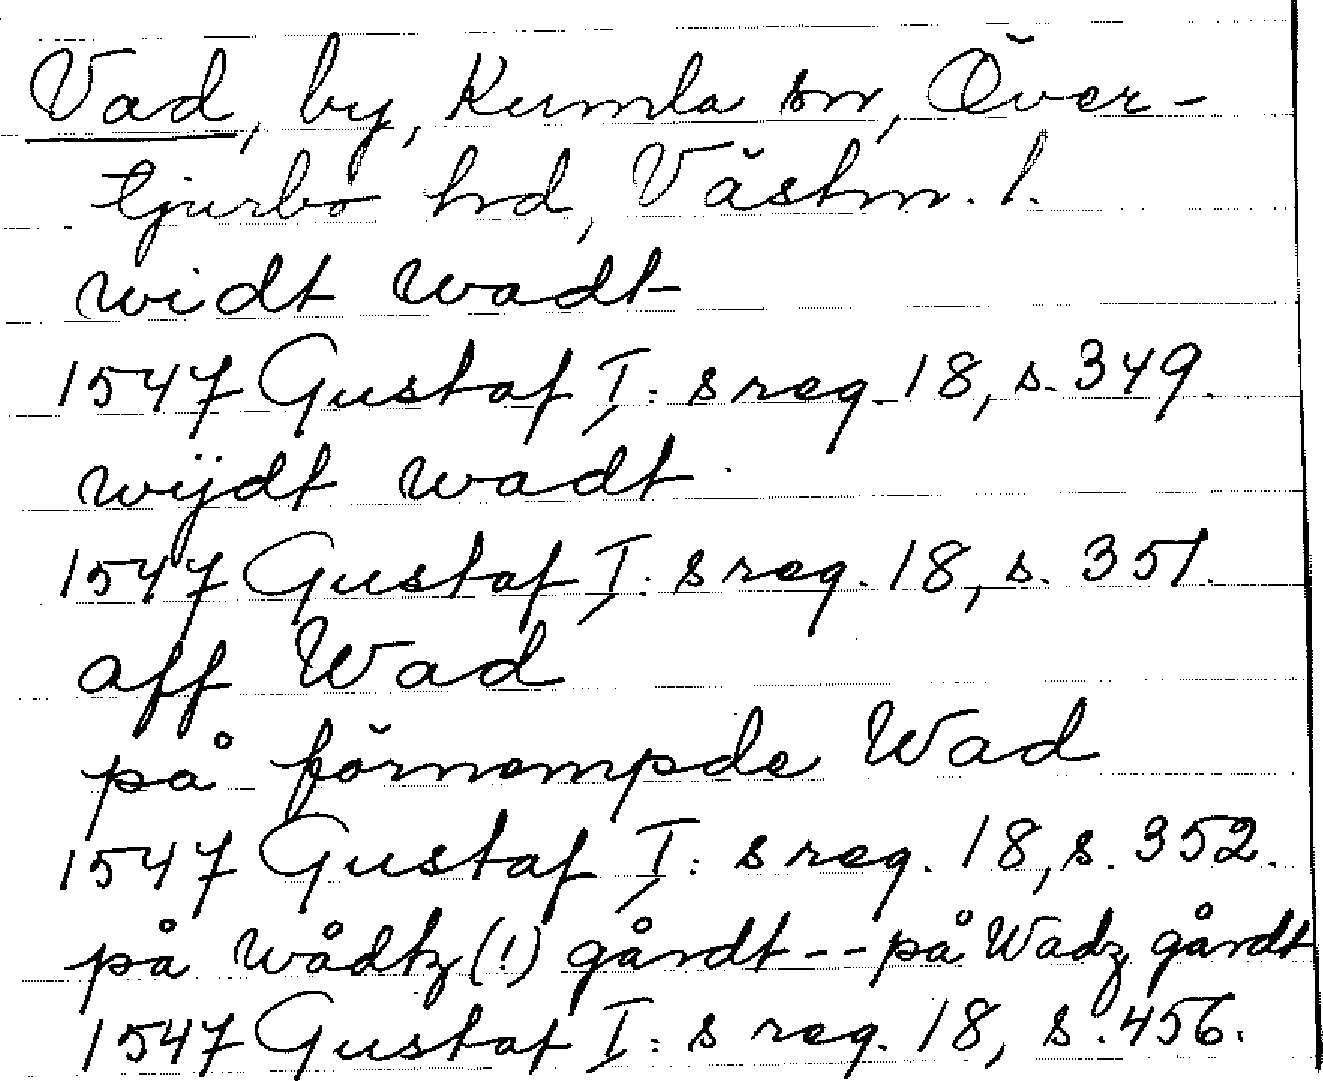 Vad, by, Kumla sn, Över-
tjurbo hd, Västm. l.
widt wadt
1547 Gustaf I: s reg. 18, s. 349.
wÿdt wadt
1547 Gustaf I: s reg. 18, s. 351.
aff Wad
på förnempde Wad
1547 Gustaf I: s reg. 18, s. 352.
på wådtz (!) gårdt -- på Wadz gårdt
1547 Gustaf I: s reg. 18, s. 456.